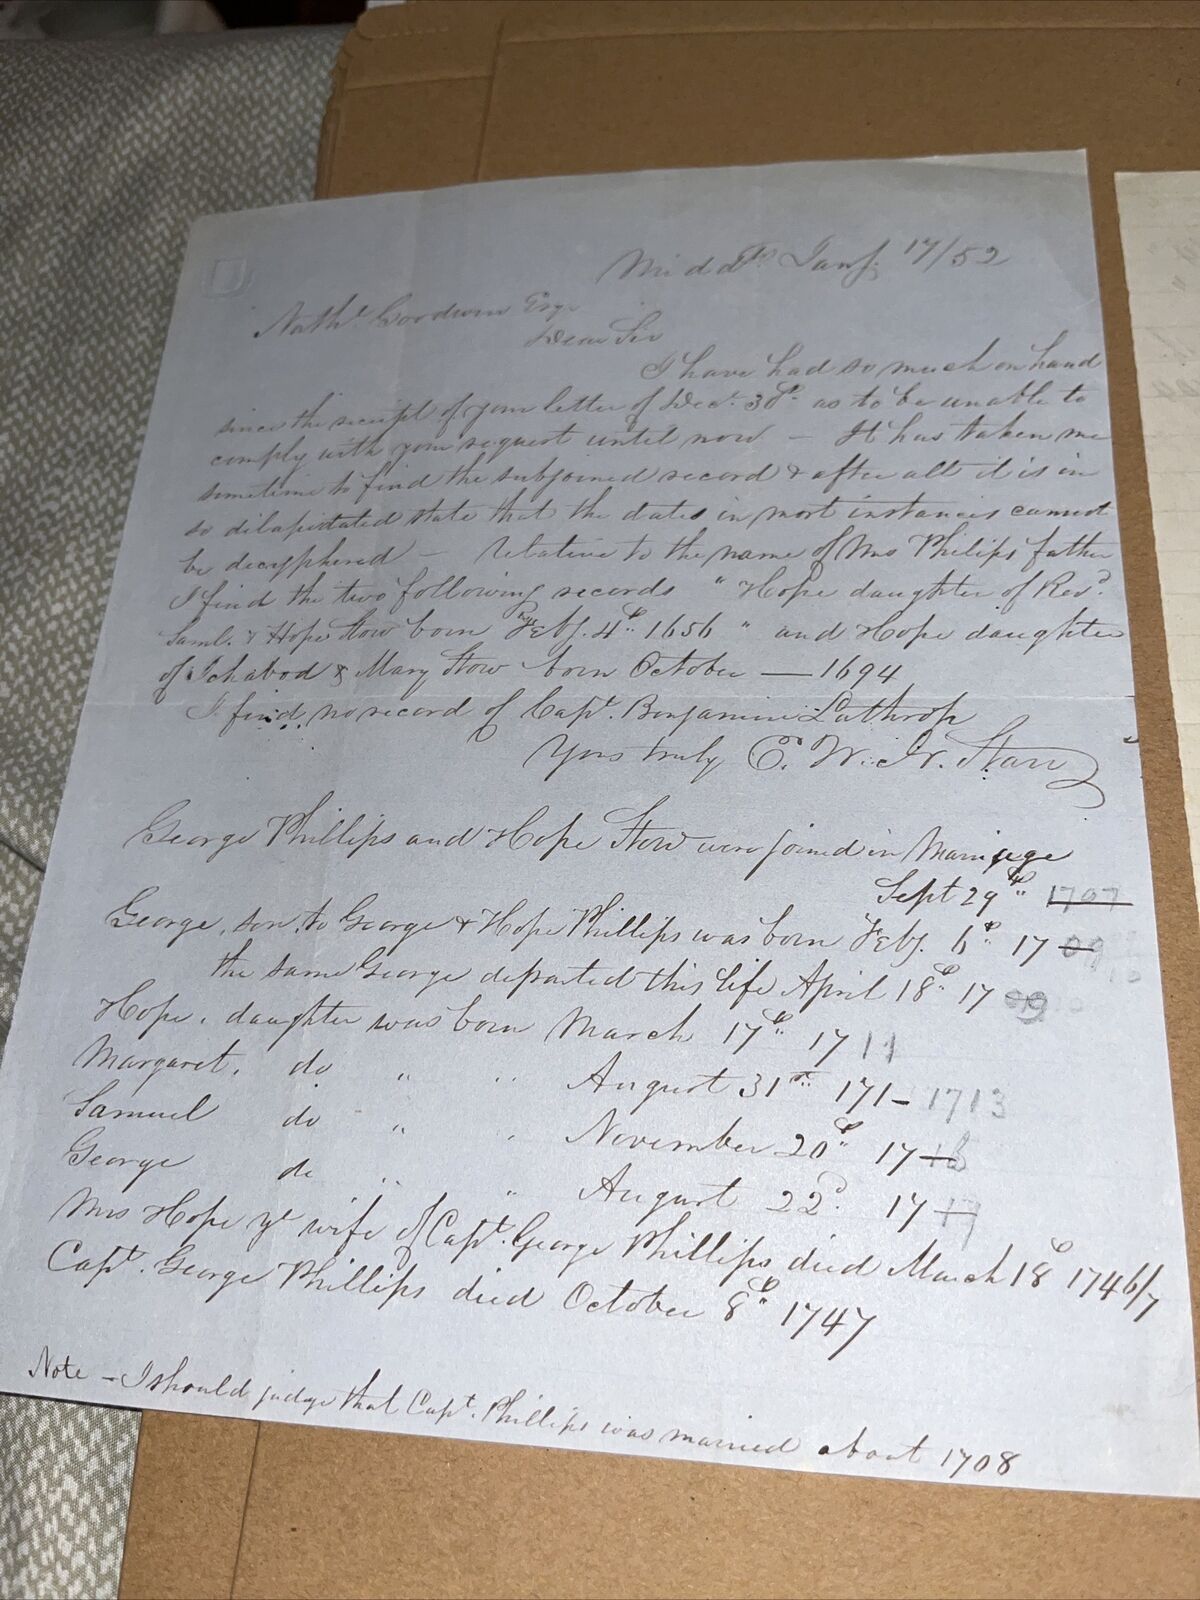 Midd.tn Jany. 17/52
Nathl. Goodwin Esqr
Dear Sir
I have had so much on hand
since the receipt of your letter of Decr. 30th as to be unable to
comply with your request until now – It has taken me
sometime to find the subjoined record & after all it is in
so dilapidated state that the dates in most instances cannot
be decyphered – relative to the name of Mrs Philips father
I find the two following records " Hope daughter of Revd.
Saml. & Hope Stow born Feby. 4th 1656 " and Hope daughter
of Ichabod & Mary Stow born October — 1694
I find no record of Capt. Benjamin Lathrop
Yors truly E. W. N. Starr
George Phillips and Hope Stow were joined in Marriage
Sept 29th 1707
George, son to George & Hope Phillips was born Feby. 6th 17 09
the same George departed this life April 18th 17 09
Hope, daughter was born March 17th 17 11
Margaret, do " " August 31st 171- 1713
Samuel do " " November 20th 17
George do " " August 22d 17 17
Mrs Hope ye wife of Capt. George Phillips died March 18th 1746/7
Capt. George Phillips died October 8th 1747
Note – I should judge that Capt. Phillips was married about 1708